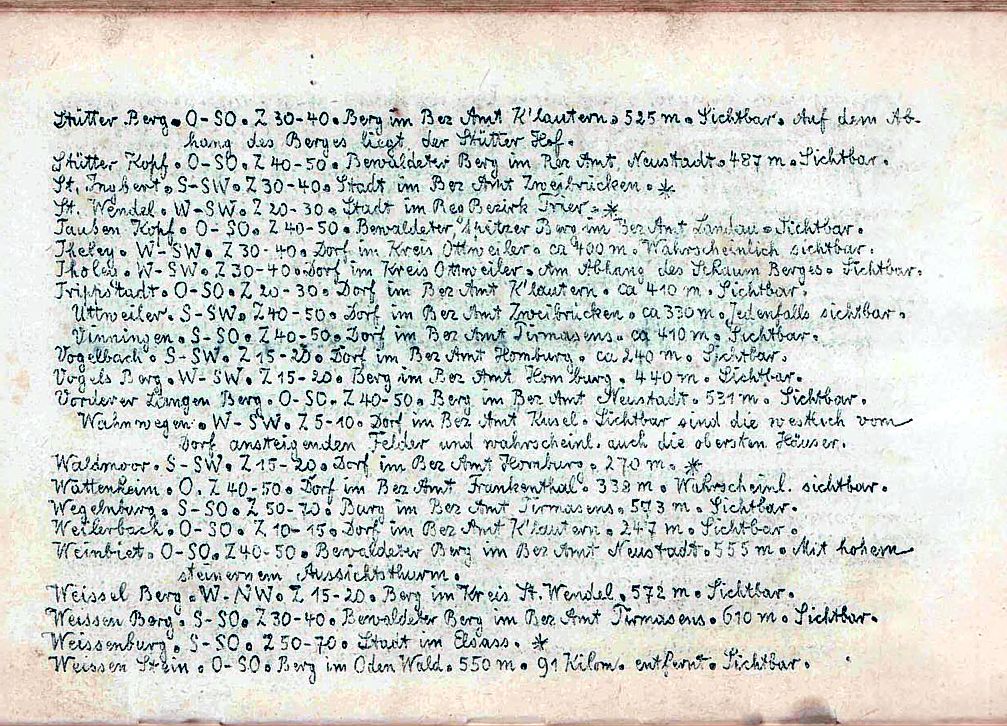 Stütter Berg. O-SO. Z 30-40. Berg im Bez Amt K'lautern. 525 m. Sichtbar. Auf dem Ab-
hang des Berges liegt der Stütter Hof.
Stütter Kopf. O-SO. Z 40-50. Bewaldeter Berg im Bez Amt Neustadt. 487 m. Sichtbar.
St. Ingbert. S-SW. Z 30-40. Stadt im Bez Amt Zweibrücken. *
St. Wendel. W-SW. Z 20-30. Stadt im Reg Bezirk Trier. *
Tauben Kopf. O-SO. Z 40-50. Bewaldeter, spitzer Berg im Bez Amt Landau. Sichtbar.
Theley. W-SW. Z 30-40. Dorf im Kreis Ottweiler. ca 400 m. Wahrscheinlich sichtbar.
Tholey. W-SW. Z 30-40. Dorf im Kreis Ottweiler. Am Abhang des Schaum Berges. Sichtbar.
Trippstadt. O-SO. Z 20-30. Dorf im Bez Amt K'lautern. ca 410 m. Sichtbar.
Uttweiler. S-SW. Z 40-50. Dorf im Bez Amt Zweibrücken. ca 330 m. Jedenfalls sichtbar.
Vinningen. S-SO. Z 40-50. Dorf im Bez Amt Pirmasens. ca 410 m. Sichtbar.
Vogelbach. S-SW. Z 15-20. Dorf im Bez Amt Homburg. ca 240 m. Sichtbar.
Vogels Berg. W-SW. Z 15-20. Berg im Bez Amt Homburg. 440 m. Sichtbar.
Vorderer Langen Berg. O-SO. Z 40-50. Berg im Bez Amt Neustadt. 531 m. Sichtbar.
Wahnwegen. W-SW. Z 5-10. Dorf im Bez Amt Kusel. Sichtbar sind die westlich vom
Dorf ansteigenden Felder und wahrscheinl. auch die obersten Häuser.
Waldmoor. S-SW. Z 15-20. Dorf im Bez Amt Homburg. 270 m. *
Wattenheim. O. Z 40-50. Dorf im Bez Amt Frankenthal. 338 m. Wahrscheinl. sichtbar.
Wegelnburg. S-SO. Z 50-70. Burg im Bez Amt Pirmasens. 573 m. Sichtbar.
Weilerbach. O-SO. Z 10-15. Dorf im Bez Amt K'lautern. 247 m. Sichtbar.
Weinbiet. O-SO. Z 40-50. Bewaldeter Berg im Bez Amt Neustadt. 555 m. Mit hohem
steinernem Aussichtsthurm.
Weissel Berg. W-NW. Z 15-20. Berg im Kreis St. Wendel. 572 m. Sichtbar.
Weissen Berg. S-SO. Z 30-40. Bewaldeter Berg im Bez Amt Pirmasens. 610 m. Sichtbar.
Weissenburg. S-SO. Z 50-70. Stadt im Elsass. *
Weissen Stein. O-SO. Berg im Oden Wald. 550 m. 91 Kilom. entfernt. Sichtbar.